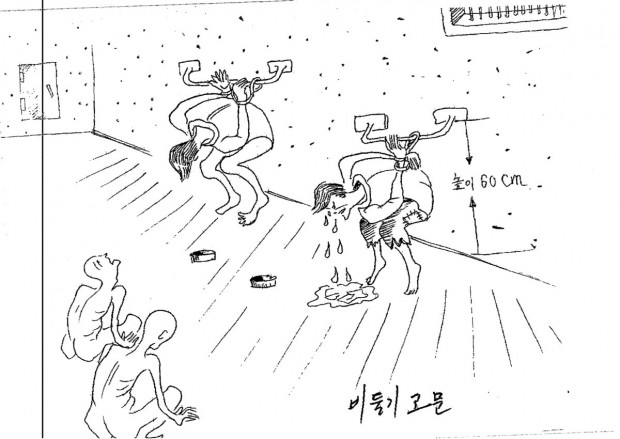 높이 60 cm
비둘기 고문